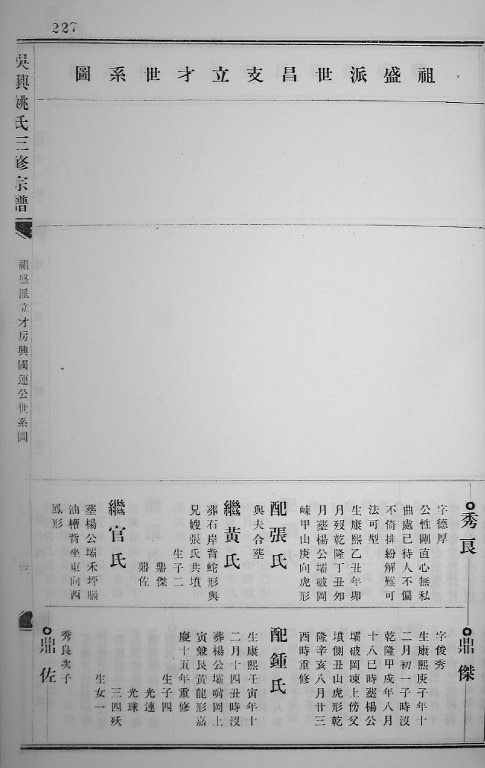 227
祖盛派世昌支立才世系圖
吳興姚氏三修宗譜
祖盛派立才房興國蓮公世系圖
三
秀良
字德厚
公性剛直心無私
曲處已待人不偏
不倚排紛解難可
法可型
生康熙乙丑年卯
月歿乾隆丁丑如
月葬楊公壩破岡
崠甲山庚向虎形
配張氏
與夫合葬
繼黃氏
葬石岸背蛇形與
兄嫂張氏共墳
生子二
鼎傑
鼎佐
繼官氏
葬楊公壩禾坪腦
油槽背坐東向西
鳳形
鼎傑
字俊秀
生康熙庚子年十
二月初一子時沒
乾隆甲戌年八月
十八巳時葬楊公
壩破岡凍上傍父
墳側丑山虎形乾
隆辛亥八月廿三
酉時重修
配鍾氏
生康熙壬寅年十
二月十四丑時沒
葬楊公壩岡上
寅兼艮黃龍形嘉
慶十五年重修
生子四
光連
光球
三四殀
生女一
鼎佐
秀良次子